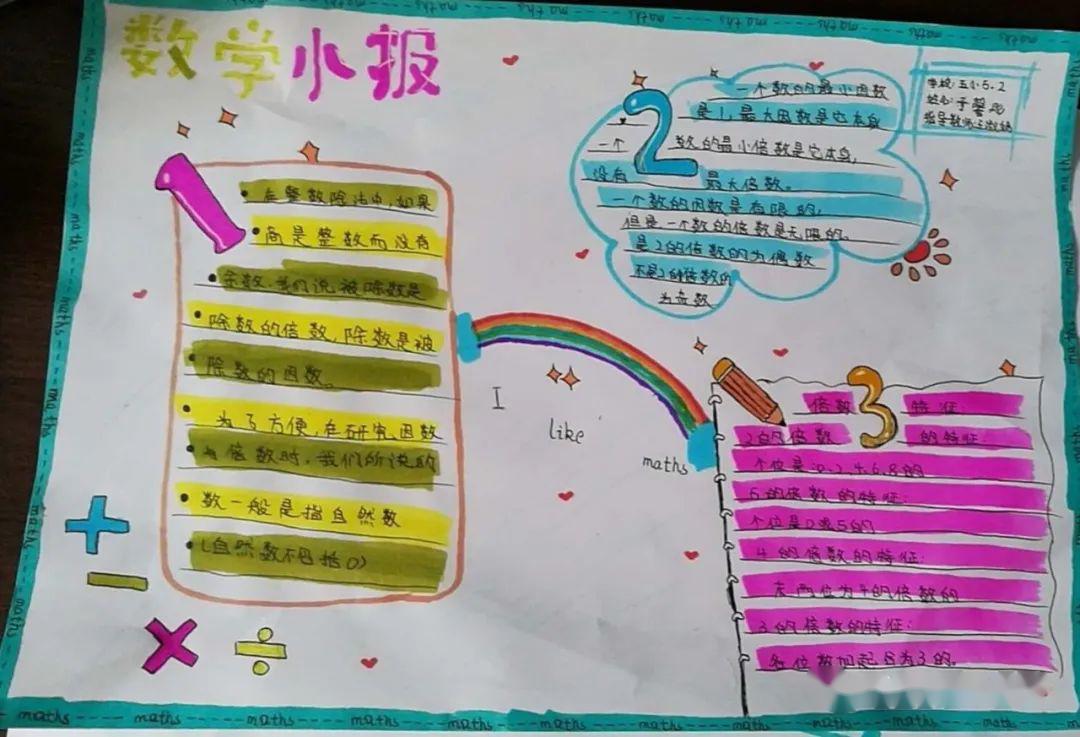 数学小报
1
在整数除法中,如果
商是整数而没有
余数,我们说被除数是
除数的倍数,除数是被
除数的因数。
为了方便,在研究因数
与倍数时,我们所说的
数一般是指自然数
(自然数不包括0)
2
一个数的最小因数
是1,最大因数是它本身
一个 数的最小倍数是它本身,
没有 最大倍数。
一个数的因数是有限的,
但是一个数的倍数是无限的。
是2的倍数的为偶数
不是2的倍数的
为奇数
学校:五小5.2
姓名:于馨
指导教师
I
like
maths
3
倍数 特征:
2的倍数 的特征:
个位是0.2.4.6.8的
5的倍数的特征:
个位是0或5的
4的倍数的特征:
末两位为4的倍数的
3的倍数的特征:
各位数加起各为3的。
maths maths maths maths maths maths maths maths maths